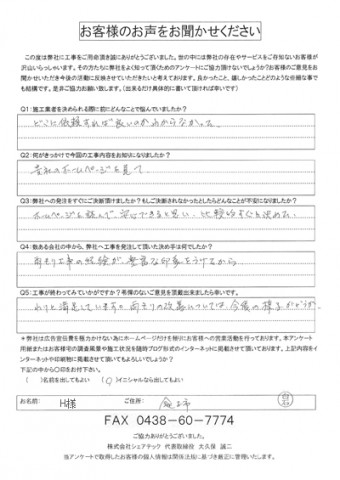 お客様のお声をお聞かせください
この度は弊社に工事をご用命頂き誠にありがとうございました。世の中には弊社の存在やサービスをご存知ないお客様が
沢山いらっしゃいます。その方たちに弊社をよく知って頂くためのアンケートにご協力頂けないでしょうか?お客様のご意見をお
聞かせいただき今後の活動に反映させていただきたいと考えております。良かったこと、嬉しかったことどのような些細な事で
も結構です。是非ご協力お願い致します。(出来るだけ具体的に書いて頂ければ幸いです)
Q1:施工業者を決められる際に前にどんなことで悩んでいましたか?
どこに依頼すれば良いのかわからなかった。
Q2:何がきっかけで今回の工事内容をお知りになりましたか?
貴社のホームページを見て
Q3:弊社への発注をすぐにご決断頂けましたか?もしご決断されなかったとしたらどんなことが不安になりましたか?
ホームページを読んで、安心できると思い、比較的すぐ決めた。
Q4:数ある会社の中から、弊社へ工事を発注して頂いた決め手は何でしたか?
雨もり工事の経験が、豊富な印象をうけたから
Q5:工事が終わってみていかがですか?考慮のないご意見を頂戴出来ましたら幸いです。
わりと満足しています。雨もりの改善については、今後の様子かどうか。
*弊社は広告宣伝費を極力かけない為にホームページだけを頼りにお客様への営業活動を行っております。本アンケート
用紙またはお客様宅の調査風景や施工状況を随時ブログ形式のインターネットに掲載させて頂いております。上記内容をイ
ンターネットや印刷物に掲載させて頂いてもよろしいでしょうか?
下記の中から○印をお付下さい。
( )名前を出してもよい (○)イニシャルなら出してもよい
お名前: H様 ご住所: 市 白石
FAX 0438-60-7774
ご協力ありがとうございました。
株式会社シェアテック 代表取締役 大久保 誠二
当アンケートで取得したお客様の個人情報は関係法規に基づき厳正に管理いたします。